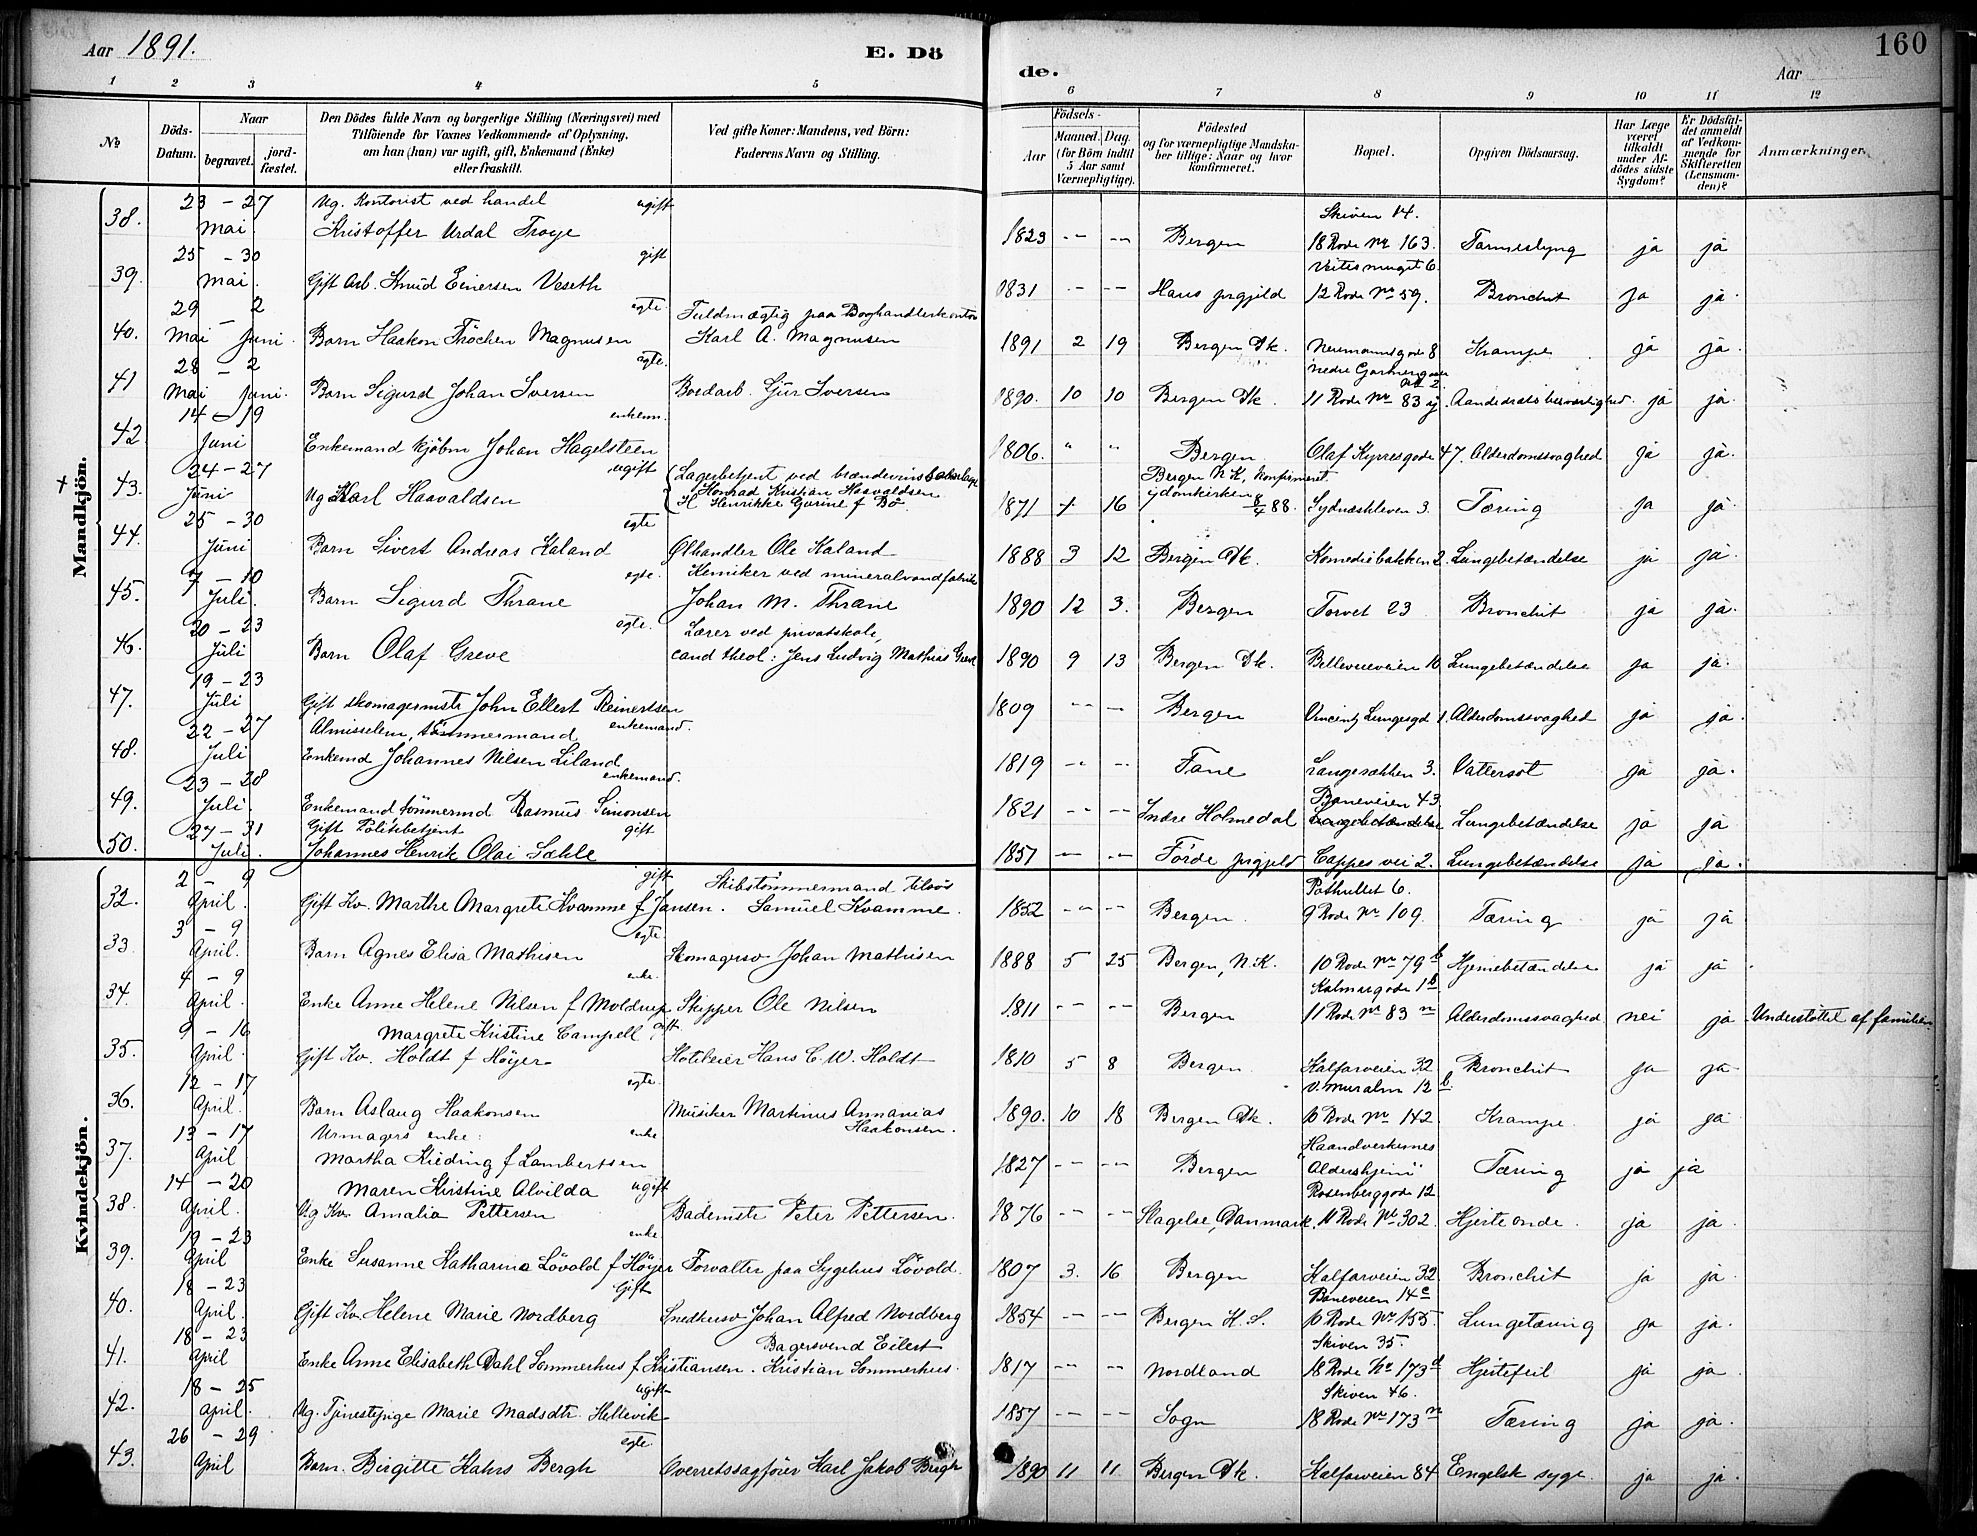 Aar 1891.
E. Dö
de.
Aar
160
1 2 3 4 5 6 7 8 9 10 11 12
№
Döds-Datum.
Naar
begravet.
jordfæstet.
Den Dödes fulde Navn og borgerlige Stilling (Næringsvei) med
Tilföiende for Voxnes Vedkommende af Oplysning,
om han (hun) var ugift, gift, Enkemand (Enke)
eller fraskilt.
Ved gifte Koner: Mandens, ved Börn:
Faderens Navn og Stilling.
Födsels-
Aar
Maaned. Dag.
(for Börn indtil
5 Aar samt
Værnepligtige).
Födested
og for værnepligtige Mandska-
ber tillige: Naar og hvor
konfirmeret.
Bopæl.
Opgiven Dödsaarsag.
Har Læge
været
tilkaldt
under Af-
dödes sidste
Sygdom?
Er Dödsfal-
det anmeldt
af Vedkom-
mende for
Skifteretten
(Lensman-
den)?
Anmærkninger.
Mandkjön.
38. 23 – 27 Mai Ug. Kontorist ved handel ugift
Kristoffer Urdal Troye 1823 -- -- Bergen Skiven 14. 18 Rode № 163. Tarmeslyng ja ja
39. 25 – 30 Mai. gift
Gift Arb. Knud Einersen Veseth 1831 -- -- Haus prgjeld Veitesmuget 6. 12 Rode № 59. Bronchit ja ja.
40. 29 Mai – 2 Juni. egte
Barn Haakon Tröchen Magnusen Fuldmægtig paa Boghandlerkontor
Karl A. Magnusen 1891 2 19 Bergen Dk. Neumannsgade 8 Krampe ja ja.
41 28 Mai – 2 Juni. egte.
Barn Sigurd Johan Iversen Bordarb. Gjür Iversen 1890. 10 10 Bergen Dk. Nedre 11 Rode № 83 Aandedrætsbesværlighed. ja ja.
42 14 – 19 Juni enkem.
Enkemand kjöbm Johan Hagelsteen 1806. " " Bergen. Olaf Kyrresgade 47. Alderdomssvaghed ja ja.
+ 43. 24 – 27 Juni ugift
Ug Karl Haavaldsen Lagerbetjent ved
Konrad Kristian Haavaldsen
H Henrikke Gurine f Bö. 1871 4 16 Bergen N.K, Konfirmeret
i domkirken 8/4 88. Sydneskleven 3. Tæring ja ja.
44. 25 – 30 Juni egte
Barn Sivert Andreas Kaland Ølhandler Ole Kaland 1888 3 12 Bergen Dk. Komediebakken 2. Lungebetændelse ja ja.
45. 7 – 10 Juli. egte.
Barn Sigurd Thrane Kemiker ved mineralvandfabrik
Johan M. Thrane 1890 12 3. Bergen Torvet 23 Bronchit ja ja.
46. 20 – 23 Juli egte.
Barn Olaf Greve Lærer ved privatskole,
cand theol: Jens Ludvig Mathias Greve 1890 9 13 Bergen Dk. Bellevueveien 10 Lungebetændelse ja ja.
47. 19 – 23 Juli
Gift skomagermstr John Ellert Reinertsen 1809 -- -- Bergen Vincentz Lungesgd 1. Alderdomssvaghed ja ja.
48. 22 – 27 Juli Almisselem, tömmermand enkemand.
Enkemd Johannes Nilsen Liland 1819 -- -- Fane Langerækken 3. Vattersot ja ja.
49. 23 – 28 Juli. enkemand.
Enkemand tömmermd Rasmus Simonsen 1821 -- -- Indre Holmedal Baneveien 43 Lungebetændelse Lungebetændelse ja ja
50. 27 – 31 Juli. Gift Politibetjent gift
Johannes Henrik Olai Sæhle 1851 -- -- Förde prgjeld Cappes vei 2. Lungebetændelse ja ja.
Kvindekjön.
32. 2 – 9 April. gift
Gift Kv. Marthe Margrete Kvamme f Jansen. Skibstömmermand tilsös
Samuel Kvamme. 1852 -- -- Bergen. Pöthullet 6. 9 Rode № 109. Tæring ja ja
33. 3 – 9 April. egte.
Barn Agnes Elisa Mathisen Skomagersv Johan Mathisen 1888 5 25 Bergen, N.K. 10 Rode № 79 b Hjernebetændelse ja ja.
34. 4 – 9 April. enke.
Enke Anne Helene Nilsen f Moldrup Skipper Ole Nilsen 1811 -- -- Bergen Kalmargade 1 b. 11 Rode № 83 m Alderdomssvaghed nei ja Understöttet af familien
35. 9 – 16 April. Margrete Kristine Campell gift.
Gift Kv. Holdt f Höyer Hotileier Hans C. W. Holdt 1810 5 8 Bergen. Kalfarveien 32 Bronchit ja ja.
36. 12 – 17 April. egte.
Barn Aslaug Haakonsen Musiker Martinus Annanias
Haakonsen. 1890. 10 18 Bergen Dk. V. Muralm 12 b. 6 Rode № 142. Krampe. ja ja
37. 13 – 17 April Urmagers enke: enke
Martha Kieding f Lambertsen 1827 -- -- Bergen Haandverkernes
"Aldershjem" Tæring ja ja
38. 14 – 20 April. Maren Kirstine Alvilda ugift
Ug Kv. Amalia Pettersen Bademstr Peter Pettersen. 1876 -- -- Slagelse, Danmark. Rosenberggade 12. 11 Rode № 302. Hjerteonde. ja ja.
39. 19 – 23 April enke
Enke Susanne Katharina Lövold f Höyer Forvalter paa Sygehus Lövold. 1807 3. 16 Bergen Kalfarveien 32 Bronchit ja ja.
40. 18 – 23 April. Gift
Gift Kv. Helene Marie Nordberg Snedkersv Johan Alfred Nordberg 1854 -- -- Bergen H. S. Baneveien 14 c 6 Rode № 155. Lungetæring ja ja.
41. 18 – 23 April
Enke Anne Elisabeth Dahl Sommerhus f Kristiansen. Bagersvend Eilert
Kristian Sommerhus. 1817 -- -- Nordland Skiven 35. 18 Rode № 173 d Hjertefeil ja ja.
42. 18 – 25 April. ugift
Ug. Tjenestepige Marie Madsdtr. Hellevik 1857 -- -- Sogn Skiven 46. 18 Rode № 173 m Tæring ja ja.
43. 26 – 29 April egte.
Barn. Birgitte Kahrs Bergh Overretssagförer Karl Jakob Bergh 1890 11 11 Bergen Dk. Kalfarveien 84 Engelsk syge. ja ja.